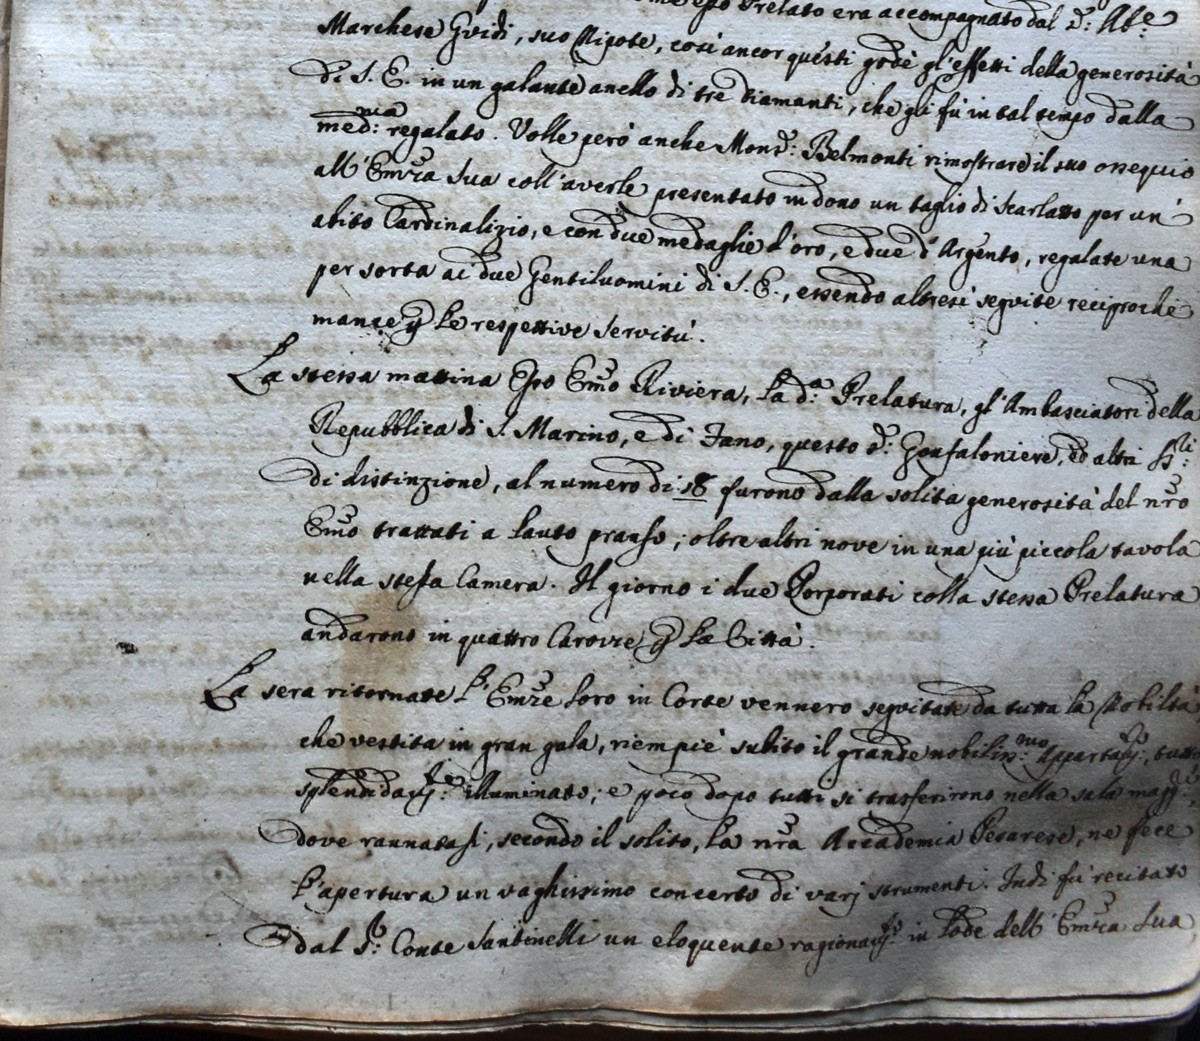 esso Prelato era accompagnato dal S.r Ab.e
Marchese Gvidi, suo Nipote, così ancor questi godè gl'effetti della generosità
di S. E. in un galante anello di tre diamanti, che gli fù in tal tempo dalla
med:ma regalato. Volle però anche Mons.r: Belmonti rimostrare il suo ossequio
all'Emza Sua coll'averle presentato in dono un taglio di Scarlatto per un'
abito Cardinalizio, e con due medaglie d'oro, e due d'Argento, regalate una
per sorta ai due Gentiluomini di S. E., essendo altresì segvite reciproche
mance p le respettive servitù.
La stessa mattina Esso Emo Riviera, la d:a Prelatura, gl'Ambasciatori della
Repubblica di S. Marino, e di Fano, questo S.r: Gonfaloniere, ed altri Sig:ri
di distinzione, al numero di 18 furono dalla solita generosità del nro
Emo trattati a lauto pranso; oltre altri nove in una più piccola tavola
nella stessa Camera. Il giorno i due Porporati colla stessa Prelatura
andarono in quattro Carozze p la Città.
La sera ritornate l'Emze loro in Corte vennero segvitate da tutta la Nobiltà
che vestita in gran gala, riempiè subito il grande nobiliss:mo Appartam:to, tutto
splendidam:te illuminato; e poco dopo tutti si trasferirono nella sala magg:re,
dove rannatasi, secondo il solito, la nra Accademia Pesarese, ne fece
l'apertura un vaghissimo concerto di varj strumenti. Indi fù recitato
dal S.r: Conte Santinelli un eloquente ragionam:to in lode dell'Emza Sua